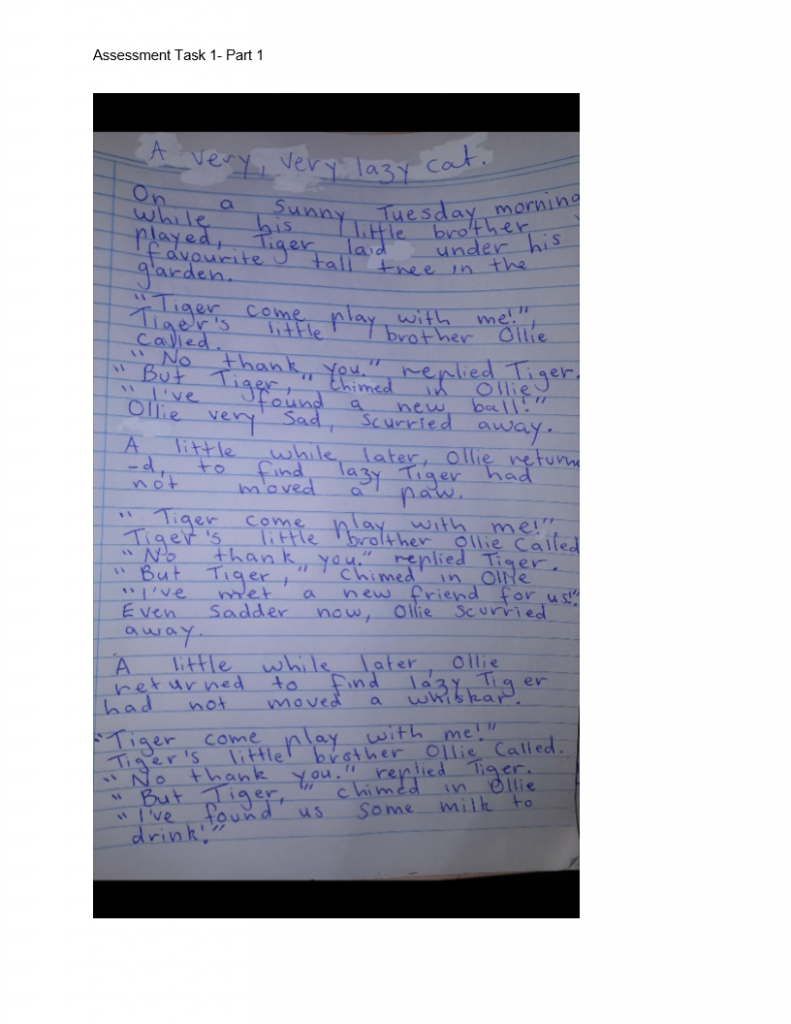 Assessment Task 1- Part 1
A very, very lazy cat.
On a sunny Tuesday morning
while his little brother
played, Tiger laid under his
favourite tall tree in the
garden.
"Tiger come play with me!",
Tiger's little brother Ollie
called.
"No thank you." replied Tiger.
"But Tiger," chimed in Ollie
"I've found a new ball!"
Ollie very sad, scurried away.
A little while later, Ollie return
-d, to find lazy Tiger had
not moved a paw.
"Tiger come play with me!"
Tiger's little brolther Ollie Called
"No thank you." replied Tiger.
"But Tiger," chimed in Ollie
"I've met a new friend for us!"
Even sadder now, Ollie scurried
away.
A little while later, Ollie
returned to find lazy Tiger
had not moved a whiskar.
"Tiger come play with me!"
Tiger's little brother Ollie Called.
"No thank you." replied Tiger.
"But Tiger," chimed in Ollie
"I've found us some milk to
drink!"